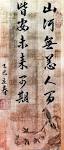 山河無恙人
皆安未来可期